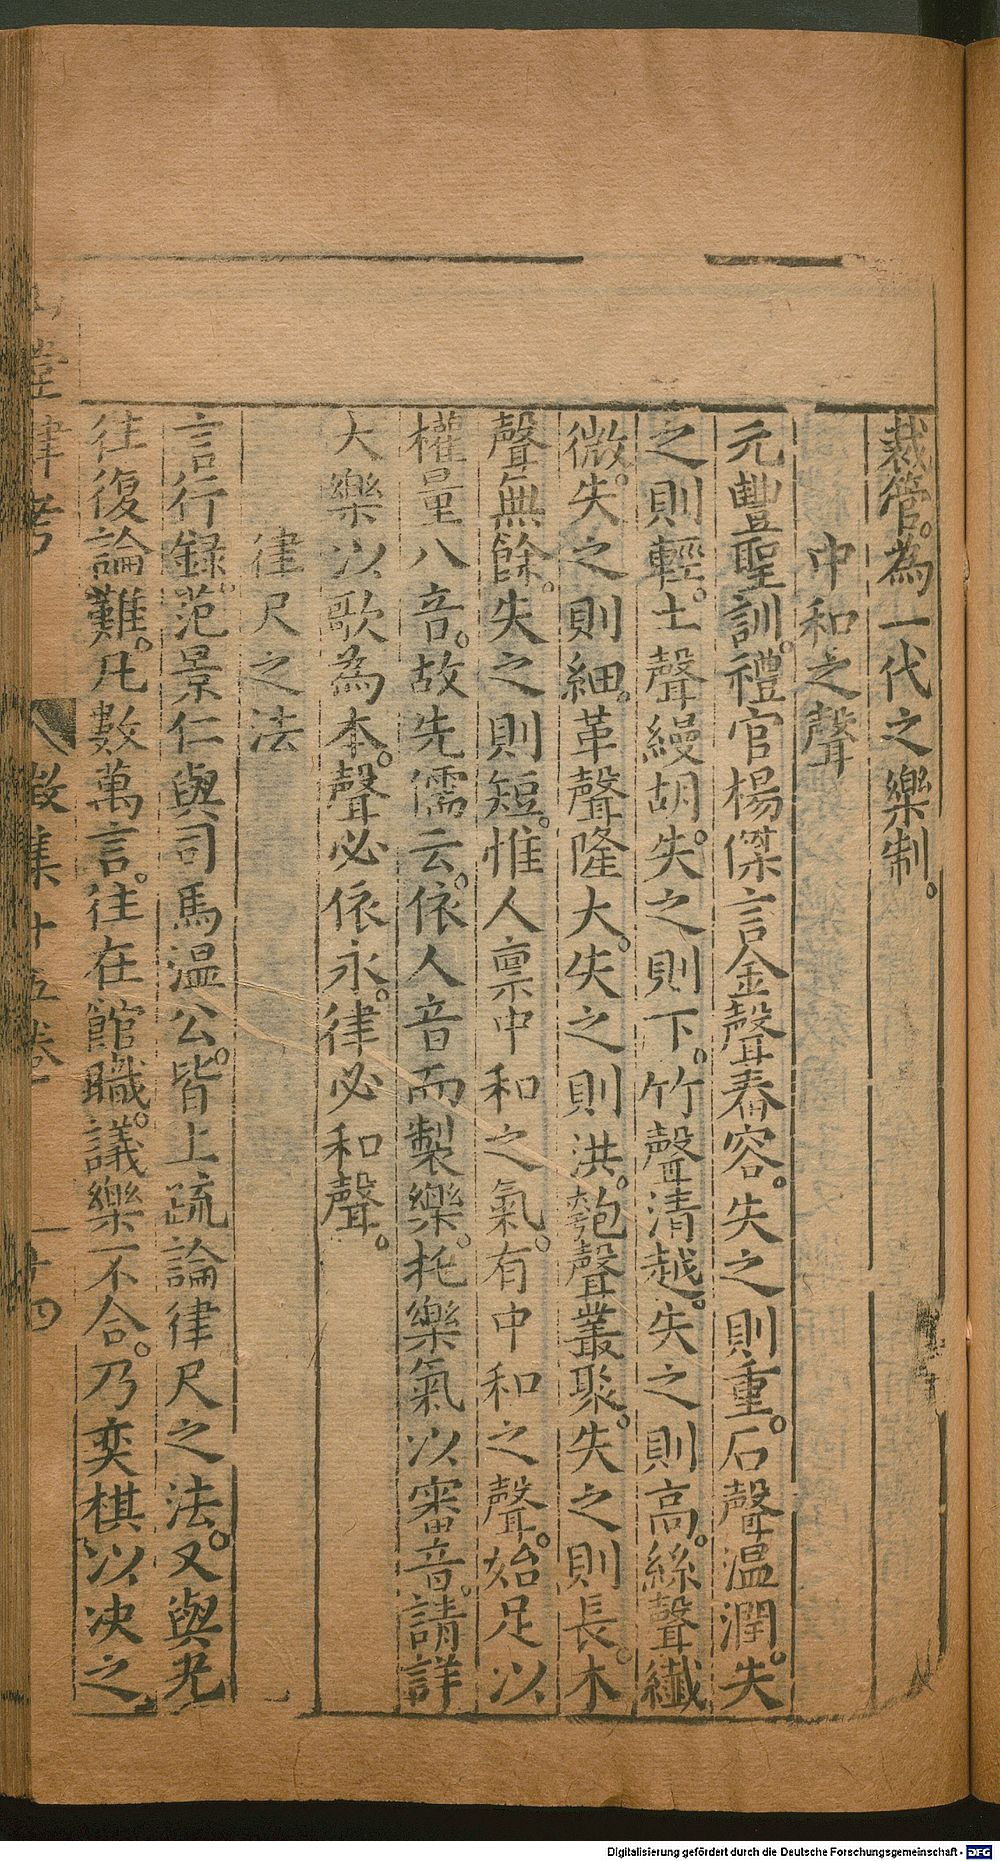 裁管。為一代之樂制。
中和之聲
元豐聖訓。禮官楊傑言金聲舂容。失之則重。石聲温潤。失
之則輕。土聲縵胡。失之則下。竹聲清越。失之則高。絲聲纖
微。失之則細。革聲隆大。失之則洪。匏聲叢聚。失之則長。木
聲無餘。失之則短。惟人稟中和之氣。有中和之聲。始足以
權量八音。故先儒云。依人音而製樂。托樂氣以審音。請詳
大樂以歌為本。聲必依永。律必和聲。
律尺之法
言行録。范景仁與司馬温公。皆上疏論律尺之法。又與光
往復論難。凡數萬言。往在館職。議樂不合。乃奕棋以决之
堂肆考 徵集十五卷 十四
Digitalisierung gefördert durch die Deutsche Forschungsgemeinschaft - DFG